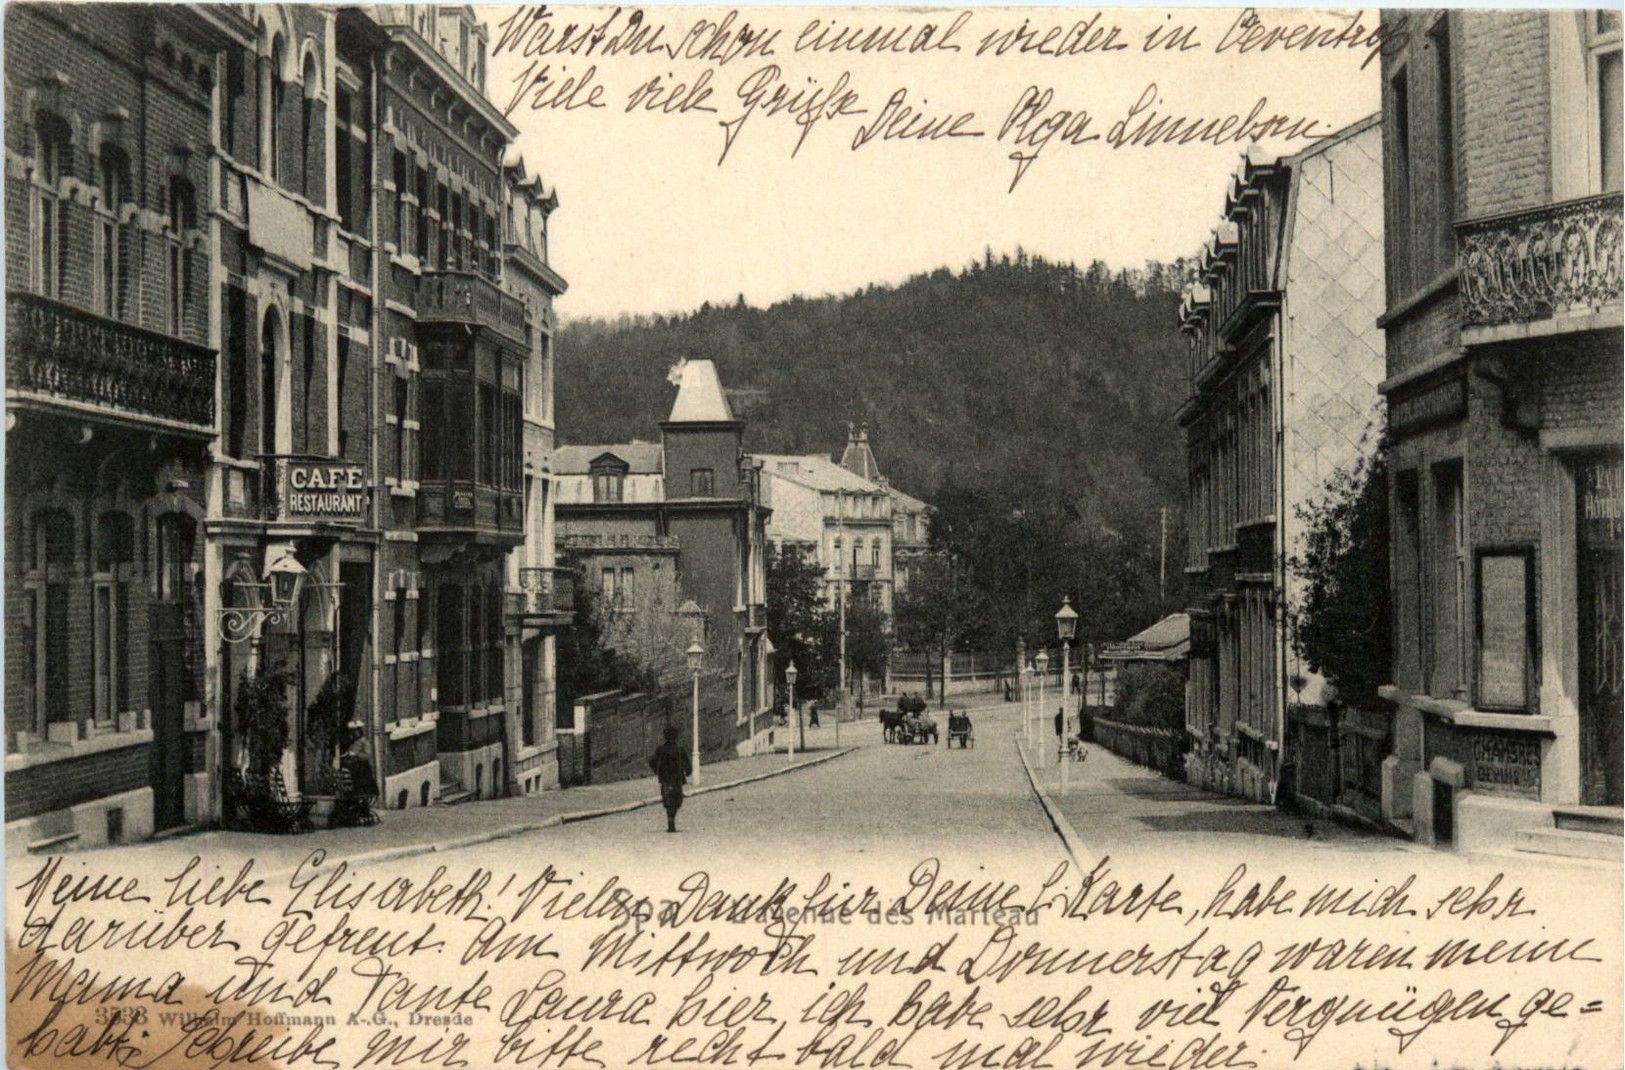 Warst Du schon einmal wieder in Oeventrop
Viele viele Grüße
Deine Olga
CAFÉ
RESTAURANT
CHAMBRES
GARNIES
Meine liebe Elisabeth! Vielen Dank für Deine l. Karte, habe mich sehr
Spa avenue des Marteau
darüber gefreut. Am Mittwoch und Donnerstag waren meine
Mama und Tante Laura hier, ich habe sehr viel Vergnügen ge=
3536 Wilhelm Hoffmann A.-G., Dresde
habt. Schreibe mir bitte recht bald mal wieder.